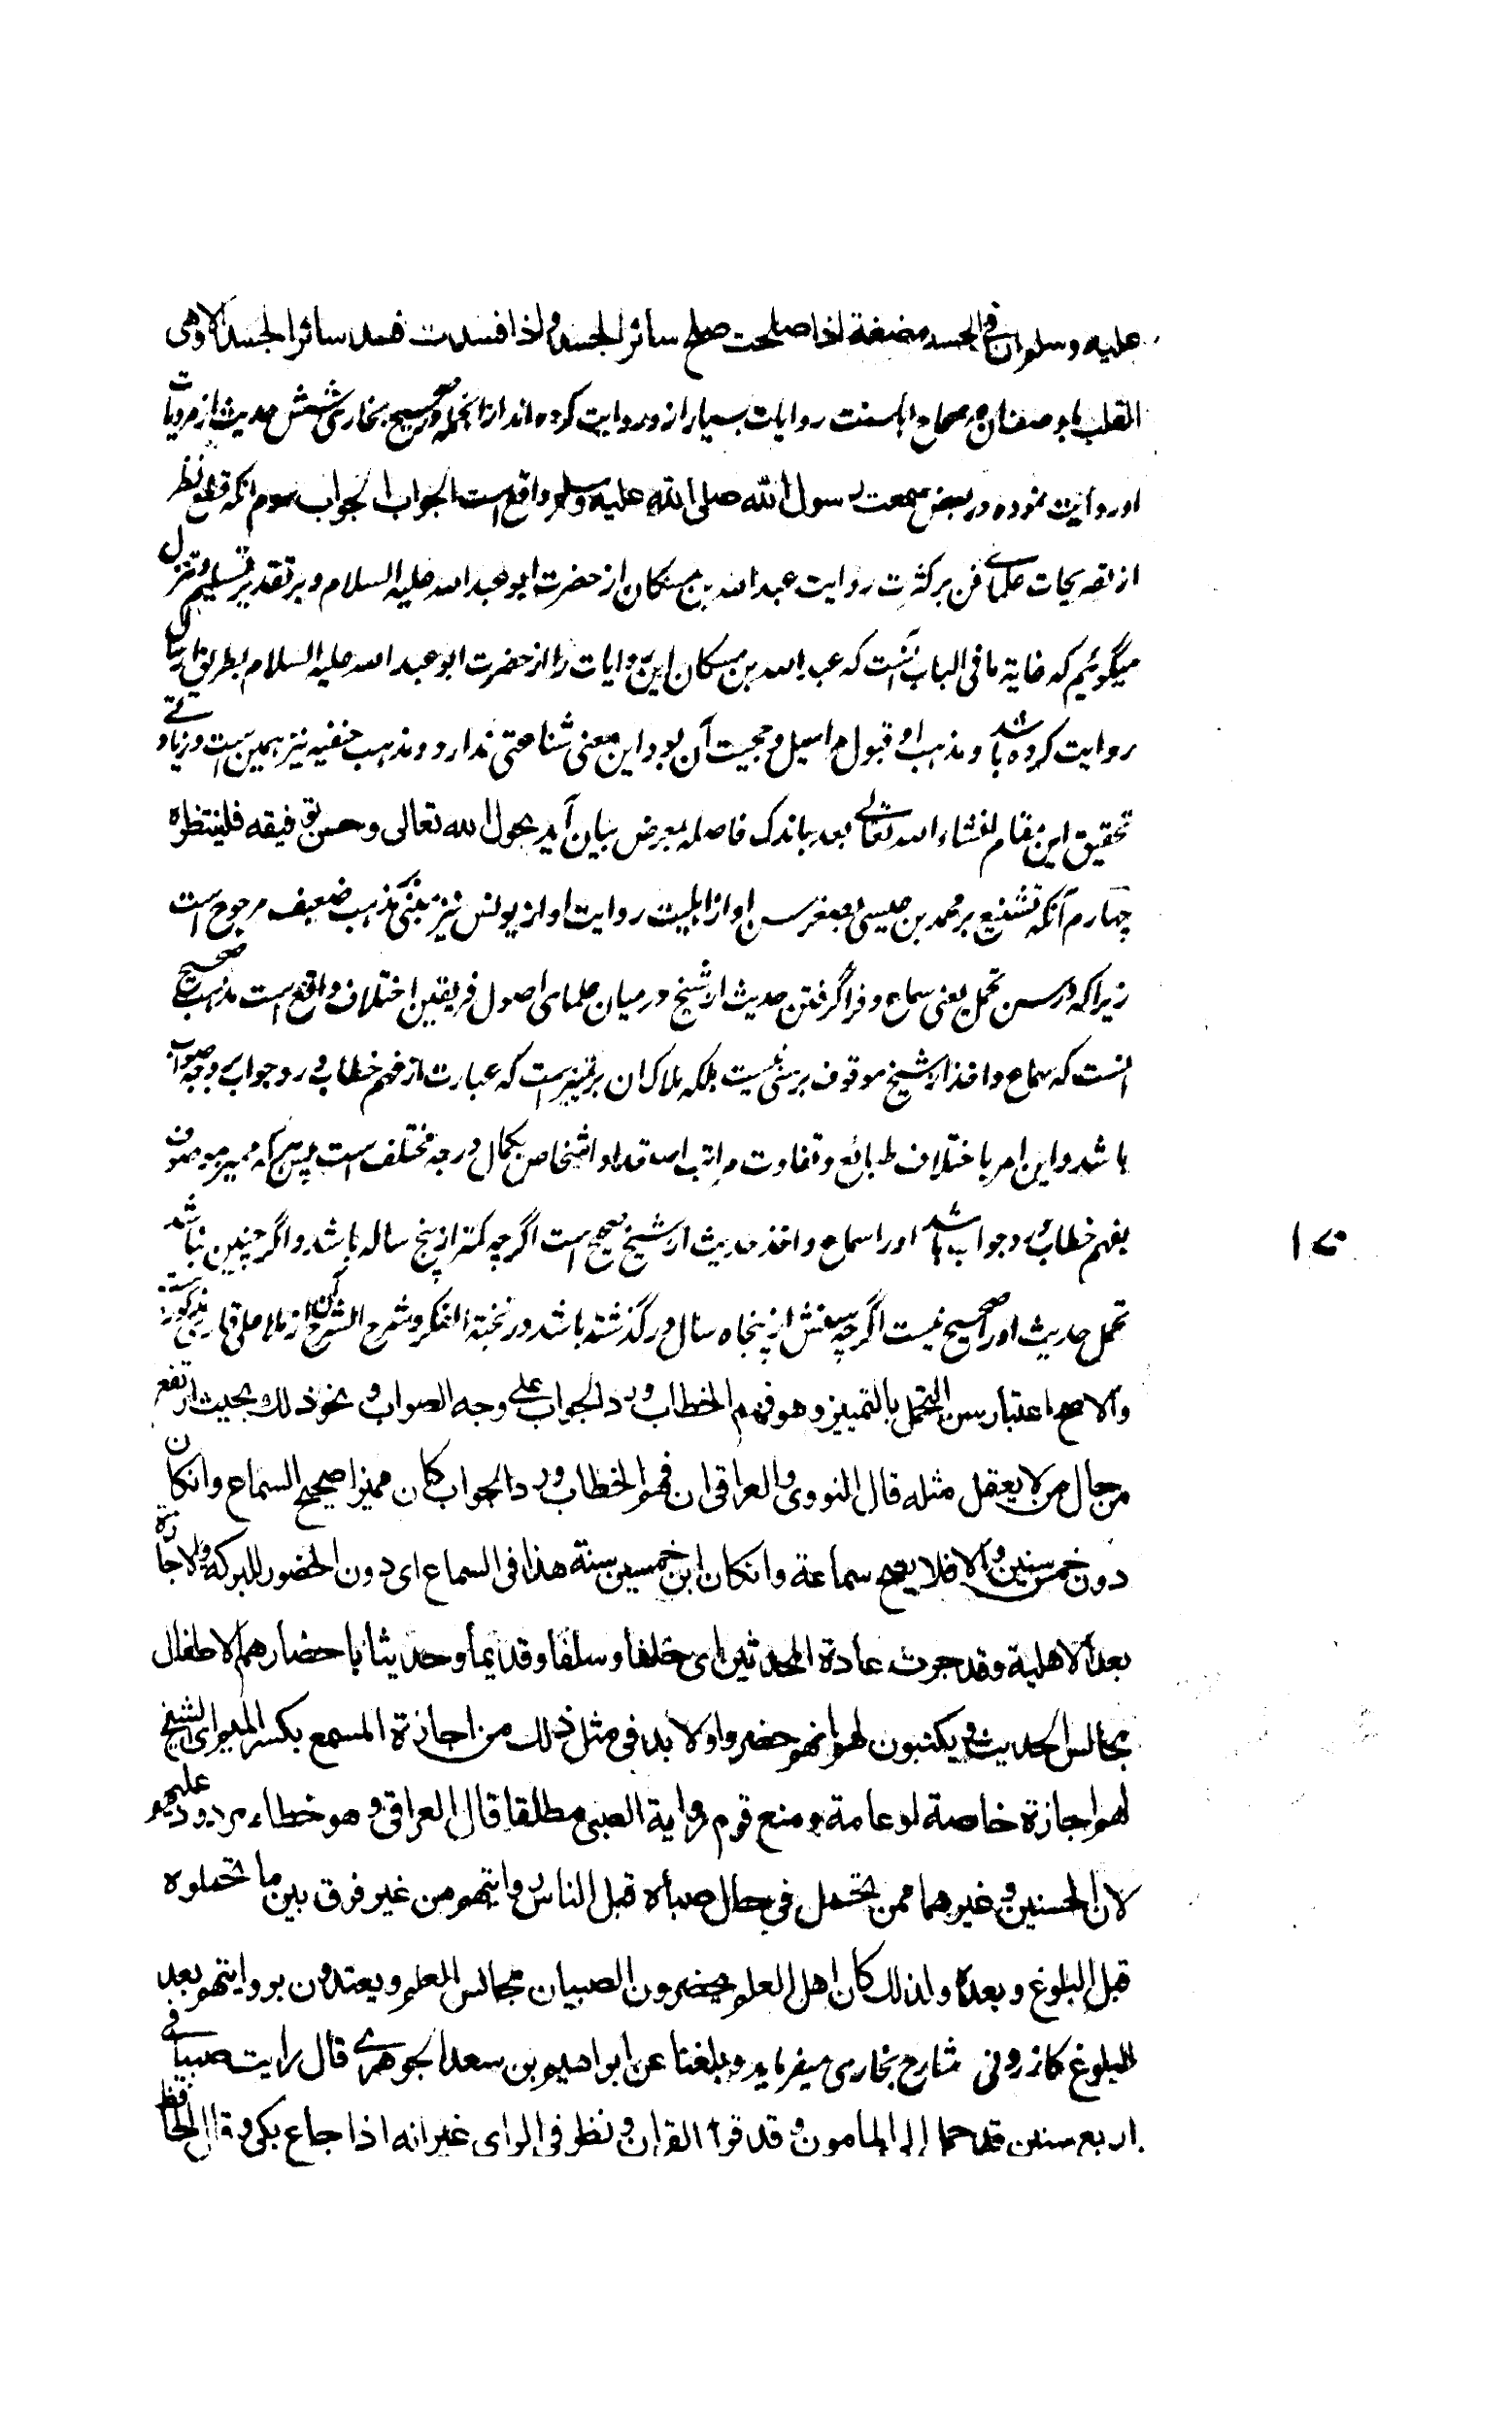 عليه وسلم ان في الجسد مضغة اذا صلحت صلح سائر الجسد واذا فسدت فسد سائر الجسد الا وهي
القلب با وصف ان در صحاح اهلسنت روايات بسيار از و روايت كرده اند از انجمله در صحيح بخاري شش حديث از مرويات
او روايت نموده و در بعض سمعت رسول الله صلى الله عليه وسلم واقع است الجواب الجواب سوم انكه قطع نظر
از تصريحات علماى فن بر كثرت روايت عبد الله بن مسكان از حضرت ابو عبد الله عليه السلام و بر تقدير تسليم و تنزل
ميگوئيم كه غاية ما في الباب آنست كه عبد الله بن مسكان اين روايات را از حضرت ابو عبد الله عليه السلام بطريق ارسال
روايت كرده باشد و مذهب او قبول مراسيل و حجيت آن بود اين معنى شناعتى ندارد و مذهب حنفيه نيز همين است و زيادتى
تحقيق اين مقام انشاء الله تعالى بعد باندك فاصله بمعرض بيان آيد بحول الله تعالى وحسن توفيقه فلينتظره
چهارم آنكه تشنيع بر محمد بن عيسى بصغر سن او از اهليت روايت او از يونس نيز مبنى بر مذهب ضعيف مرجوح است
زيرا كه در سن تحمل يعنى سماع و فرا گرفتن حديث از شيخ در ميان علماى اصول فريقين اختلاف واقع است مذهب صحيح
انست كه سماع و اخذ از شيخ موقوف بر سنى نيست بلكه ملاك ان بر تميز است كه عبارت از فهم خطاب و رد جواب بر وجه صواب
باشد و اين امر باختلاف طبائع و تفاوت مراتب استعداد اشخاص بكمال درجه مختلف است پس هر كه مميز موصوف
بفهم خطاب و جواب باشد او را سماع و اخذ حديث از شيخ صحيح است اگر چه كمتر از پنج ساله باشد و اگر چنين نباشد
تحمل حديث او را صحيح نيست اگر چه سنش از پنجاه سال در گذشته باشد در نخبة الفكر و شرح الشرح آن از ملا على قارى مذكور است
والاصح اعتبار سن التحمل بالتمييز وهو فهم الخطاب ورد الجواب على وجه الصواب ونحو ذلك بحيث ارتفع
من حال من لا يعقل مثله قال النووي والعراقي ان فهم الخطاب ورد الجواب كان مميزا صحيح السماع وانكان
دون خمس سنين والا فلا يصح سماعة وانكان ابن خمسين سنة هذا في السماع اي دون الحضور للبركة والاجازة
بعد الاهلية وقد جرت عادة المحدثين اي خلفا وسلفا وقديما وحديثا باحضارهم الاطفال
مجالس الحديث ويكتبون لهم انهم حضروا ولا بد في مثل ذلك من اجازة المسمع بكسر الميم اي الشيخ
لهم اجازة خاصة او عامة ومنع قوم رواية الصبي مطلقا قال العراقي وهو خطاء مردود عليهم
لان الحسنين وغيرهما ممن تحمل في حال صباه قبل الناس روايتهم من غير فرق بين ما تحملوه
قبل البلوغ وبعده ولذلك كان اهل العلم يحضرون الصبيان مجالس العلم ويعتدون بروايتهم بعد
البلوغ كازروني شارح بخاري ميفرمايد وبلغنا عن ابراهيم بن سعد الجوهري قال رايت صبيا في
اربع سنين قد حمل الى المامون وقد قرا القران ونظر في الراي غير انه اذا جاع بكى وقال الحافظ